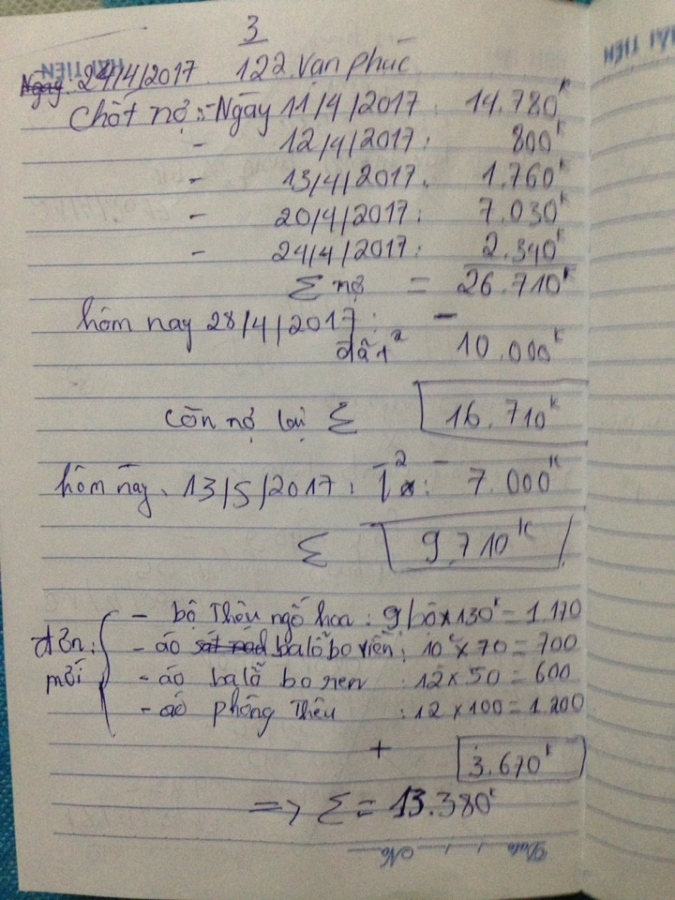 3
Ngày 24/4/2017 122 Vạn phúc
HẢI TIẾN
HẢI TIẾN
Chốt nợ :- Ngày 11/4/2017: 14.780k
- 12/4/2017: 800k
- 13/4/2017: 1.760k
- 20/4/2017: 7.030k
- 24/4/2017: 2.340k
Σ nợ = 26.710k
hôm nay 28/4/2017: -
10.000k
còn nợ lại Σ 16.710k
hôm nay, 13/5/2017: - 7.000k
Σ 9.710k
đơn mới: - bộ Thêu ngố hoa: 9 bộ x 130k = 1.170
- áo balô bo viền: 10c x 70 = 700
- áo balô bo ren: 12 x 50 = 600
- áo phông Thêu: 12 x 100 = 1.200
+ 3.670k
=> Σ = 13.380k
Date No